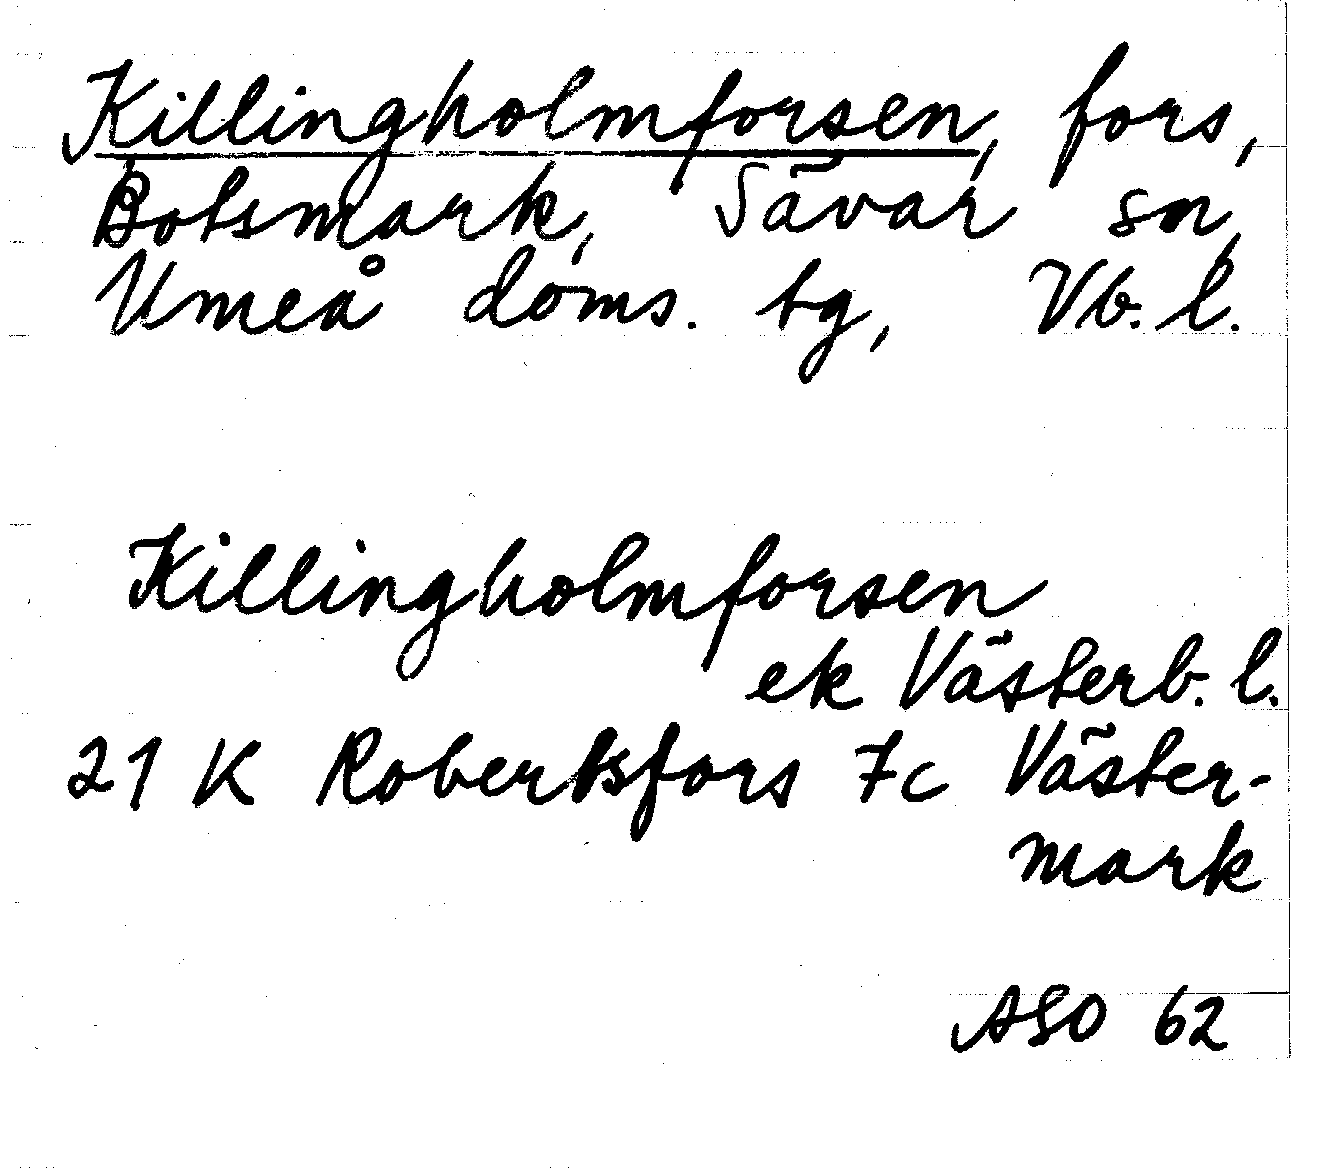 Killingholmforsen, fors,
Botsmark, Sävar sn,
Umeå doms. tg, Vb. l.
Killingholmforsen
ek Västerb. l.
21 K Robertsfors 7c Väster-
mark
ASO 62